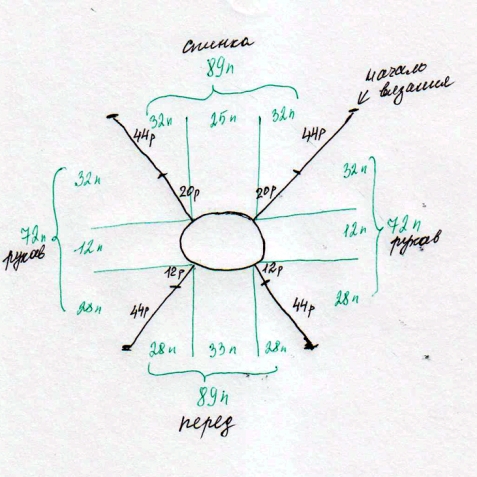 спинка
89п
начало
вязания
32п 25п 32п
44р 44р
20р 20р
32п 32п
72п 12п 12п 72п
рукав рукав
12р 12р
44р 44р
28п 28п
28п 33п 28п
89п
перед